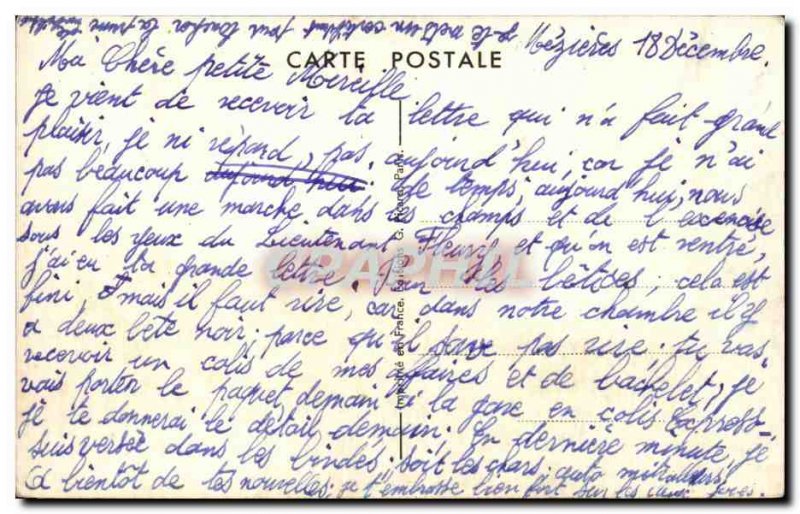 CARTE POSTALE
Mézières 18 Décembre.
Ma Chère petite Mireille
Je vient de recevoir ta lettre qui n'a fait grand
plaisir, je ni répond, pas, aujourd'hui, car je n'ai
pas beaucoup de temps, aujourd'hui, nous
avons fait une marche dans les champs et de l'exercise
sous les yeux du Lieutenant Fleury et qu'on est rentré,
j'ai eu ta grande lettre. Pour les bêtises, cela est
fini, mais il faut rire, car dans notre chambre il y
a deux bête noir; parce qu'il faux pas rire. tu vas
recevoir un colis de mes affaires et de bachelet, je
vais porter le paquet demain à la gare en colis Express
je te donnerai le détail demain. En dernière minute, je
suis versée dans les blindés; soit les chars; auto mitrailleurs;
a bientôt de tes nouvelles; je t'embrasse bien fort sur les
Imprimé en France.